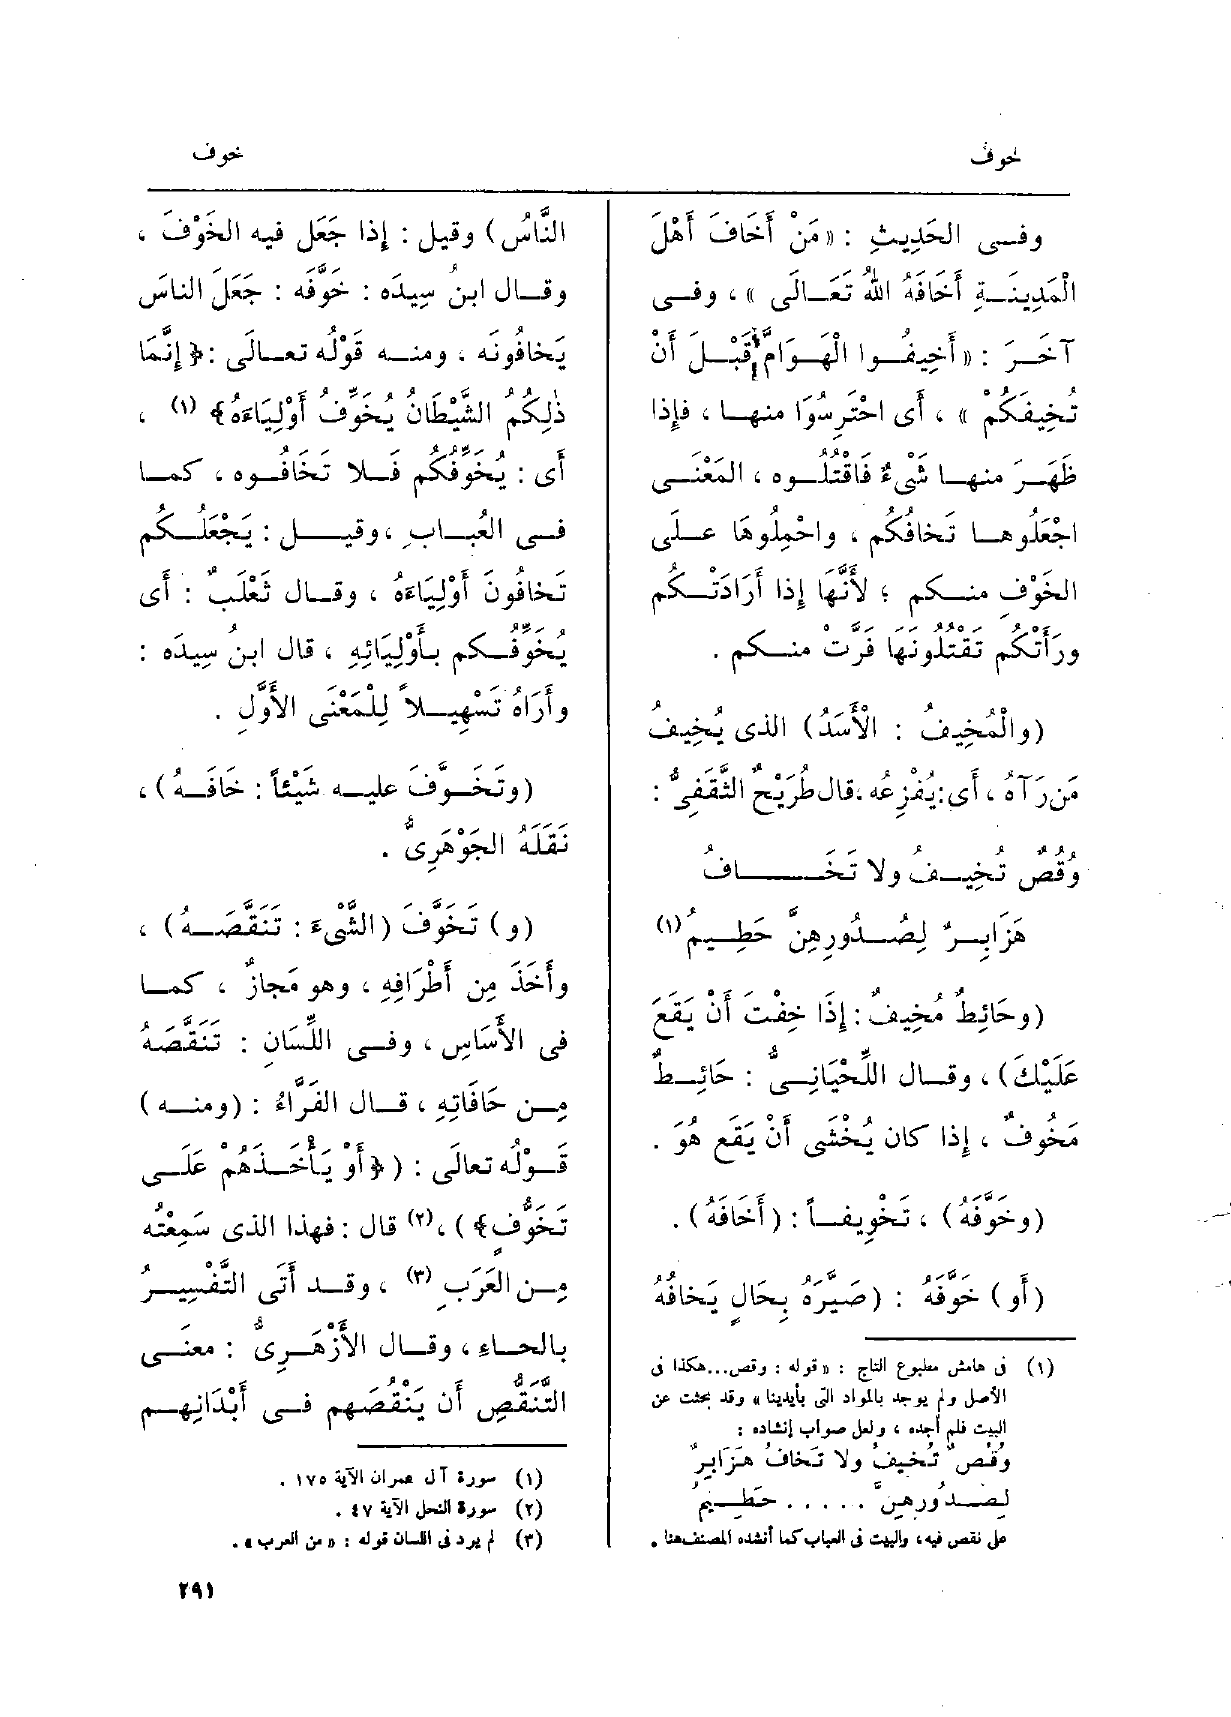 خوف
خوف
وفى الحَدِيثِ : «مَنْ أَخَافَ أَهْلَ
الْمَدِينَةِ أَخَافَهُ اللهُ تَعَالَى » ، وفى
آخَرَ : «أَخِيفُوا الْهَوَامَّ قَبْلَ أَنْ
تُخِيفَكُمْ » ، أى احْتَرِسُوا منها ، فإذا
ظَهَرَ منها شَىْءٌ فَاقْتُلُوه ، المَعْنَى
اجْعَلُوها تَخافُكُم ، واحْمِلُوهَا عَلَى
الخَوْفِ منكم ؛ لأَنَّهَا إذا أَرَادَتْكُم
ورَأَتْكُم تَقْتُلُونَهَا فَرَّتْ منكم .
(والْمُخِيفُ : الْأَسَدُ) الذى يُخِيفُ
مَن رَآهُ ، أى: يُفْزِعُه ، قال طُرَيْحٌ الثَّقَفِىُّ :
وُقُصٌ تُخِيفُ ولا تَخَافُ
هَزَابِرٌ لِصُدُورِهِنَّ حَطِيمُ (١)
(وحَائِطٌ مُخِيفٌ : إِذَا خِفْتَ أَنْ يَقَعَ
عَلَيْكَ) ، وقال اللِّحْيَانِىُّ : حَائِطٌ
مَخُوفٌ ، إذا كان يُخْشَى أَنْ يَقَع هُوَ .
(وخَوَّفَهُ) ، تَخْوِيفاً : (أَخَافَهُ) .
(أو) خَوَّفَهُ : (صَيَّرَهُ بِحَالٍ يَخَافُهُ
(١) فى هامش مطبوع التاج : «قوله : وقص...هكذا فى
الأصل ولم يوجد بالمواد التى بأيدينا » وقد بحثت عن
البيت فلم أجده ، ولعل صواب إنشاده :
وُقُصٌ تُخيفُ ولا تَخافُ هَزَابِرٌ
لِصُدُورِهِنَّ . . . . . حَطِيمُ
مل نقص فيه، والبيت فى العباب كما أنشده المصنف هنا .
النَّاسُ) وقيل : إذا جَعَل فيه الخَوْفَ ،
وقال ابنُ سِيدَه : خَوَّفَه : جَعَلَ الناسَ
يَخافُونَه ، ومنه قَوْلُه تعالَى : ﴿إِنَّمَا
ذٰلِكُمُ الشَّيْطَانُ يُخَوِّفُ أَوْلِيَاءَهُ﴾ (١) ،
أى : يُخَوِّفُكُم فَلا تَخَافُوه ، كما
فى العُبابِ ، وقيل : يَجْعَلُكُم
تَخافُونَ أَوْلِيَاءَهُ ، وقال ثَعْلَبٌ : أى
يُخَوِّفُكم بأَوْلِيَائِهِ ، قال ابنُ سِيدَه :
وأَرَاهُ تَسْهِيلاً لِلْمَعْنَى الأَوَّلِ .
(وتَخَوَّفَ عليه شَيْئاً : خَافَهُ) ،
نَقَلَهُ الجَوْهَرِىُّ .
(و) تَخَوَّفَ (الشَّىْءَ : تَنَقَّصَهُ) ،
وأَخَذَ مِن أَطْرَافِهِ ، وهو مَجازٌ ، كما
فى الأَسَاسِ ، وفى اللِّسَانِ : تَنَقَّصَهُ
مِن حَافَاتِهِ ، قال الفَرَّاءُ : (ومنه)
قَوْلُه تعالَى : ( ﴿أَوْ يَأْخُذَهُمْ عَلَى
تَخَوُّفٍ﴾ ) ،(٢) قال : فهذا الذى سَمِعْتُه
مِن العَرَبِ (٣) ، وقد أَتَى التَّفْسِيرُ
بالحاءِ ، وقال الأَزْهَرِىُّ : معنَى
التَّنَقُّصِ أَن يَنْقُصَهم فى أَبْدَانِهِم
(١) سورة آل عمران الآية ١٧٥ .
(٢) سورة النحل الآية ٤٧ .
(٣) لم يرد فى اللسان قوله : « من العرب » .
٢٩١